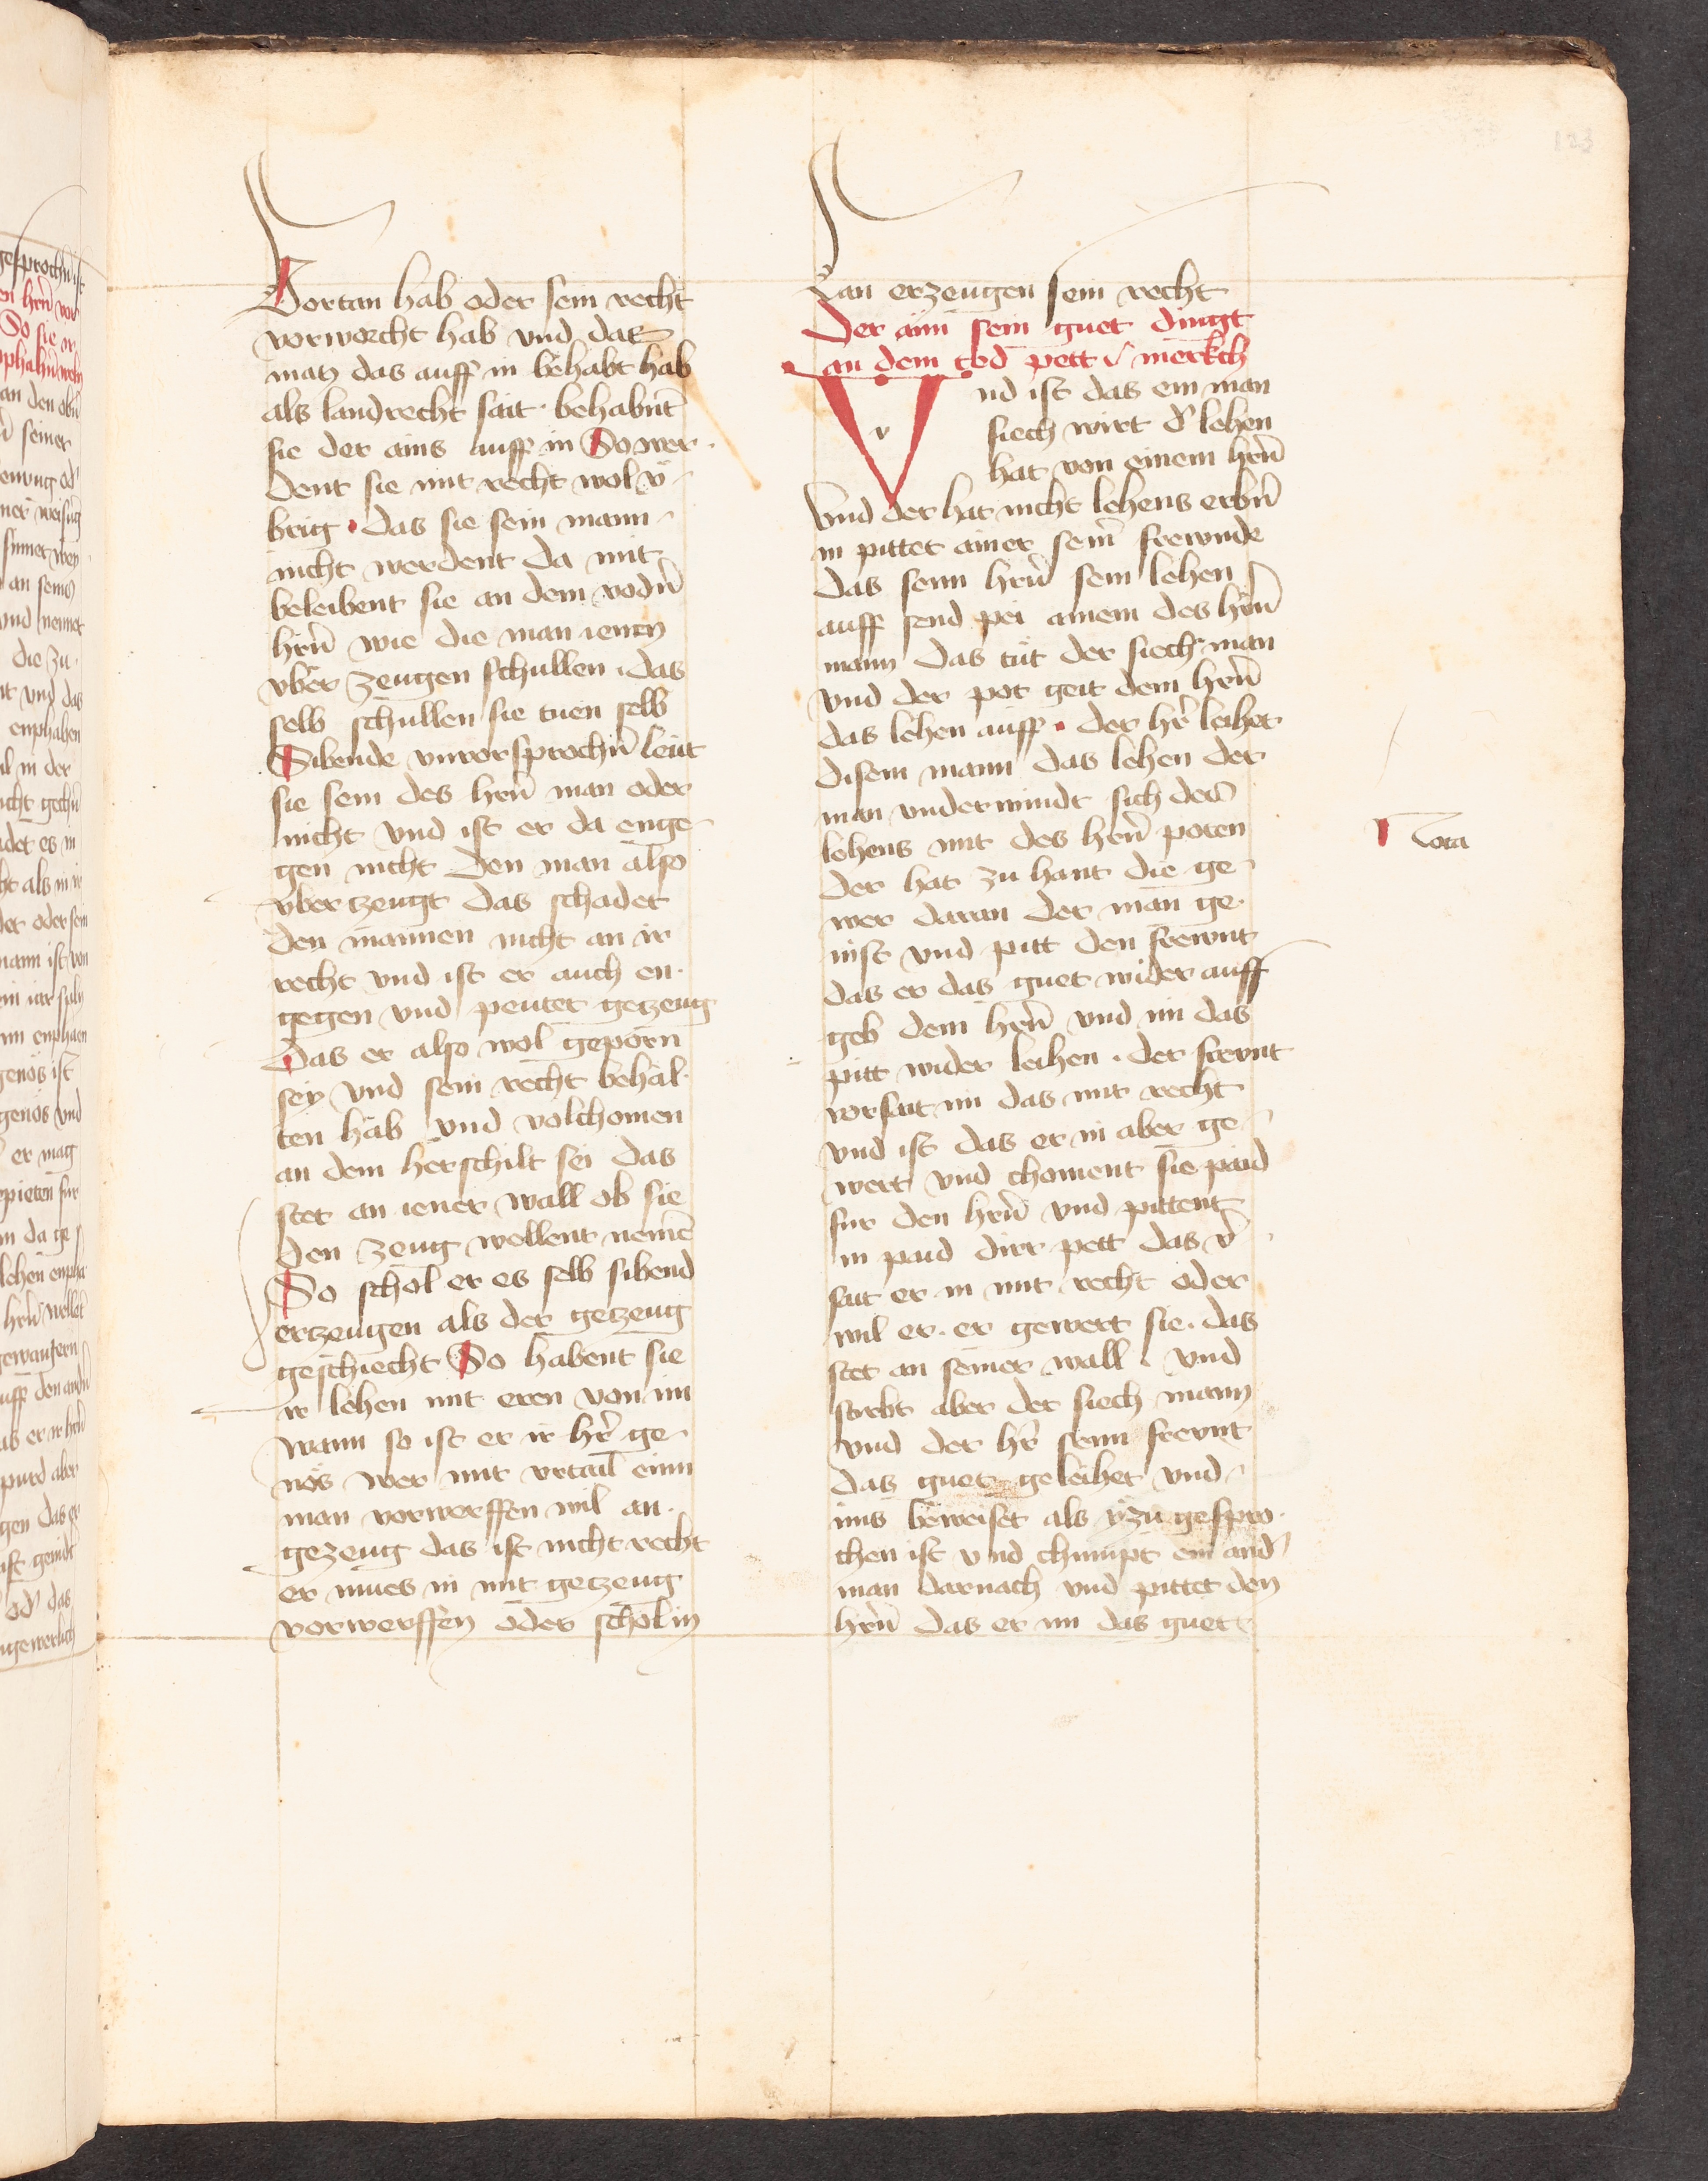 123
Vortan hab oder sein recht
vorworcht hab vnd das
man das auff in behabt hab
als landrecht sait behabnt
sie der ains auff in So wer
dent sie mit recht wol v̈
brig das sie sein mann
nicht werdent da mit
beleibent sie an dem vodñ
hrñ wie die man ienen
vber zeugen schullen das
selb schullen sie tuen selb
Sibende vnuorsprochñ leut
sie sein des hrñ man oder
nicht vnd ist er da enge
gen nicht den man also
vbertzeugt das schadet
den mannen nicht an ir
recht vnd ist er auch en
gegen vnd peutet getzeug
Das er also wol geporn
sey vnd sein recht behal
ten hab vnd volchomen
an dem herschilt sei das
stet an iener wall ob sie
den zeug wellent nemē
So schol er es selb sibend
ertzeugen als der getzeug
geschiecht So habent sie
ir lehen mit eren von im
wann so ist er ir hr̄ ge
nös wer mit vrtail einn
man vorwerffen wil an
gezeug das ist nicht recht
er mues in mit getzeug
vorwerffen oder schol in
lan erzeugen sein recht
Der ainn sein guet dingt
an dem tod pett merkch
v
Vnd ist das ein man
siech wirt d' lehen
hat von einem hrñ
Vnd der hat nicht lehens erbñ
in pittet ainer seinr̄ frewnde
das senn hrñ sein lehen
auff send pei ainem des hrñ
mann das tüt der siech man
vnd der pot geit dem hrñ
das lehen auff der hr̄ leihet
disem mann das lehen der
man vnderwindt sich dez
lehens mit des hrñ poten
der hat zu hant die ge
wer daran der man ge
nist vnd pitt den frewnt
das er das guet wider auff
geb dem hrñ vnd im das
pitt wider leihen der frewnt
vorsait im das mit recht
vnd ist das er in aber ge
wert vnd choment sie paid
fur den hrñ vnd pittent
in paid dirr pett das v̄
sait er in mit recht oder
wil er er gewert sie das
stet an seiner wall vnd
stirbt aber der siech mann
vnd der hr̄ senn frewnt
das guet geleihet vnd
ims beweiset als ÿzu gespro
chen ist vnd chumpt ein and'
man darnach vnd pittet den
hrñ das er im das guet